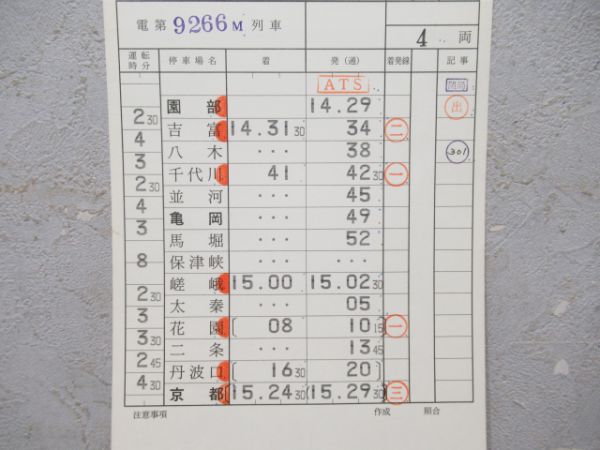 電第 9266M 列車
4 両
運転時分 停車場名 着 発(通) 着発線 記事
ATS
園部 14.29 出
2 30
吉富 14.31 30 34 二
4
八木 ··· 38 301
3
千代川 41 42 30 一
2 30
並河 ··· 45
4
亀岡 ··· 49
3
馬堀 ··· 52
8
保津峡 ··· ···
嵯峨 15.00 15.02 30
2 30
太秦 ··· 05
3
花園 ( 08 10 15 一
3 30
二条 ··· 13 45
2 45
丹波口 ( 16 30 20 )
4 30
京都 (15.24 30 (15.29 30) 三
注意事項 作成 照合